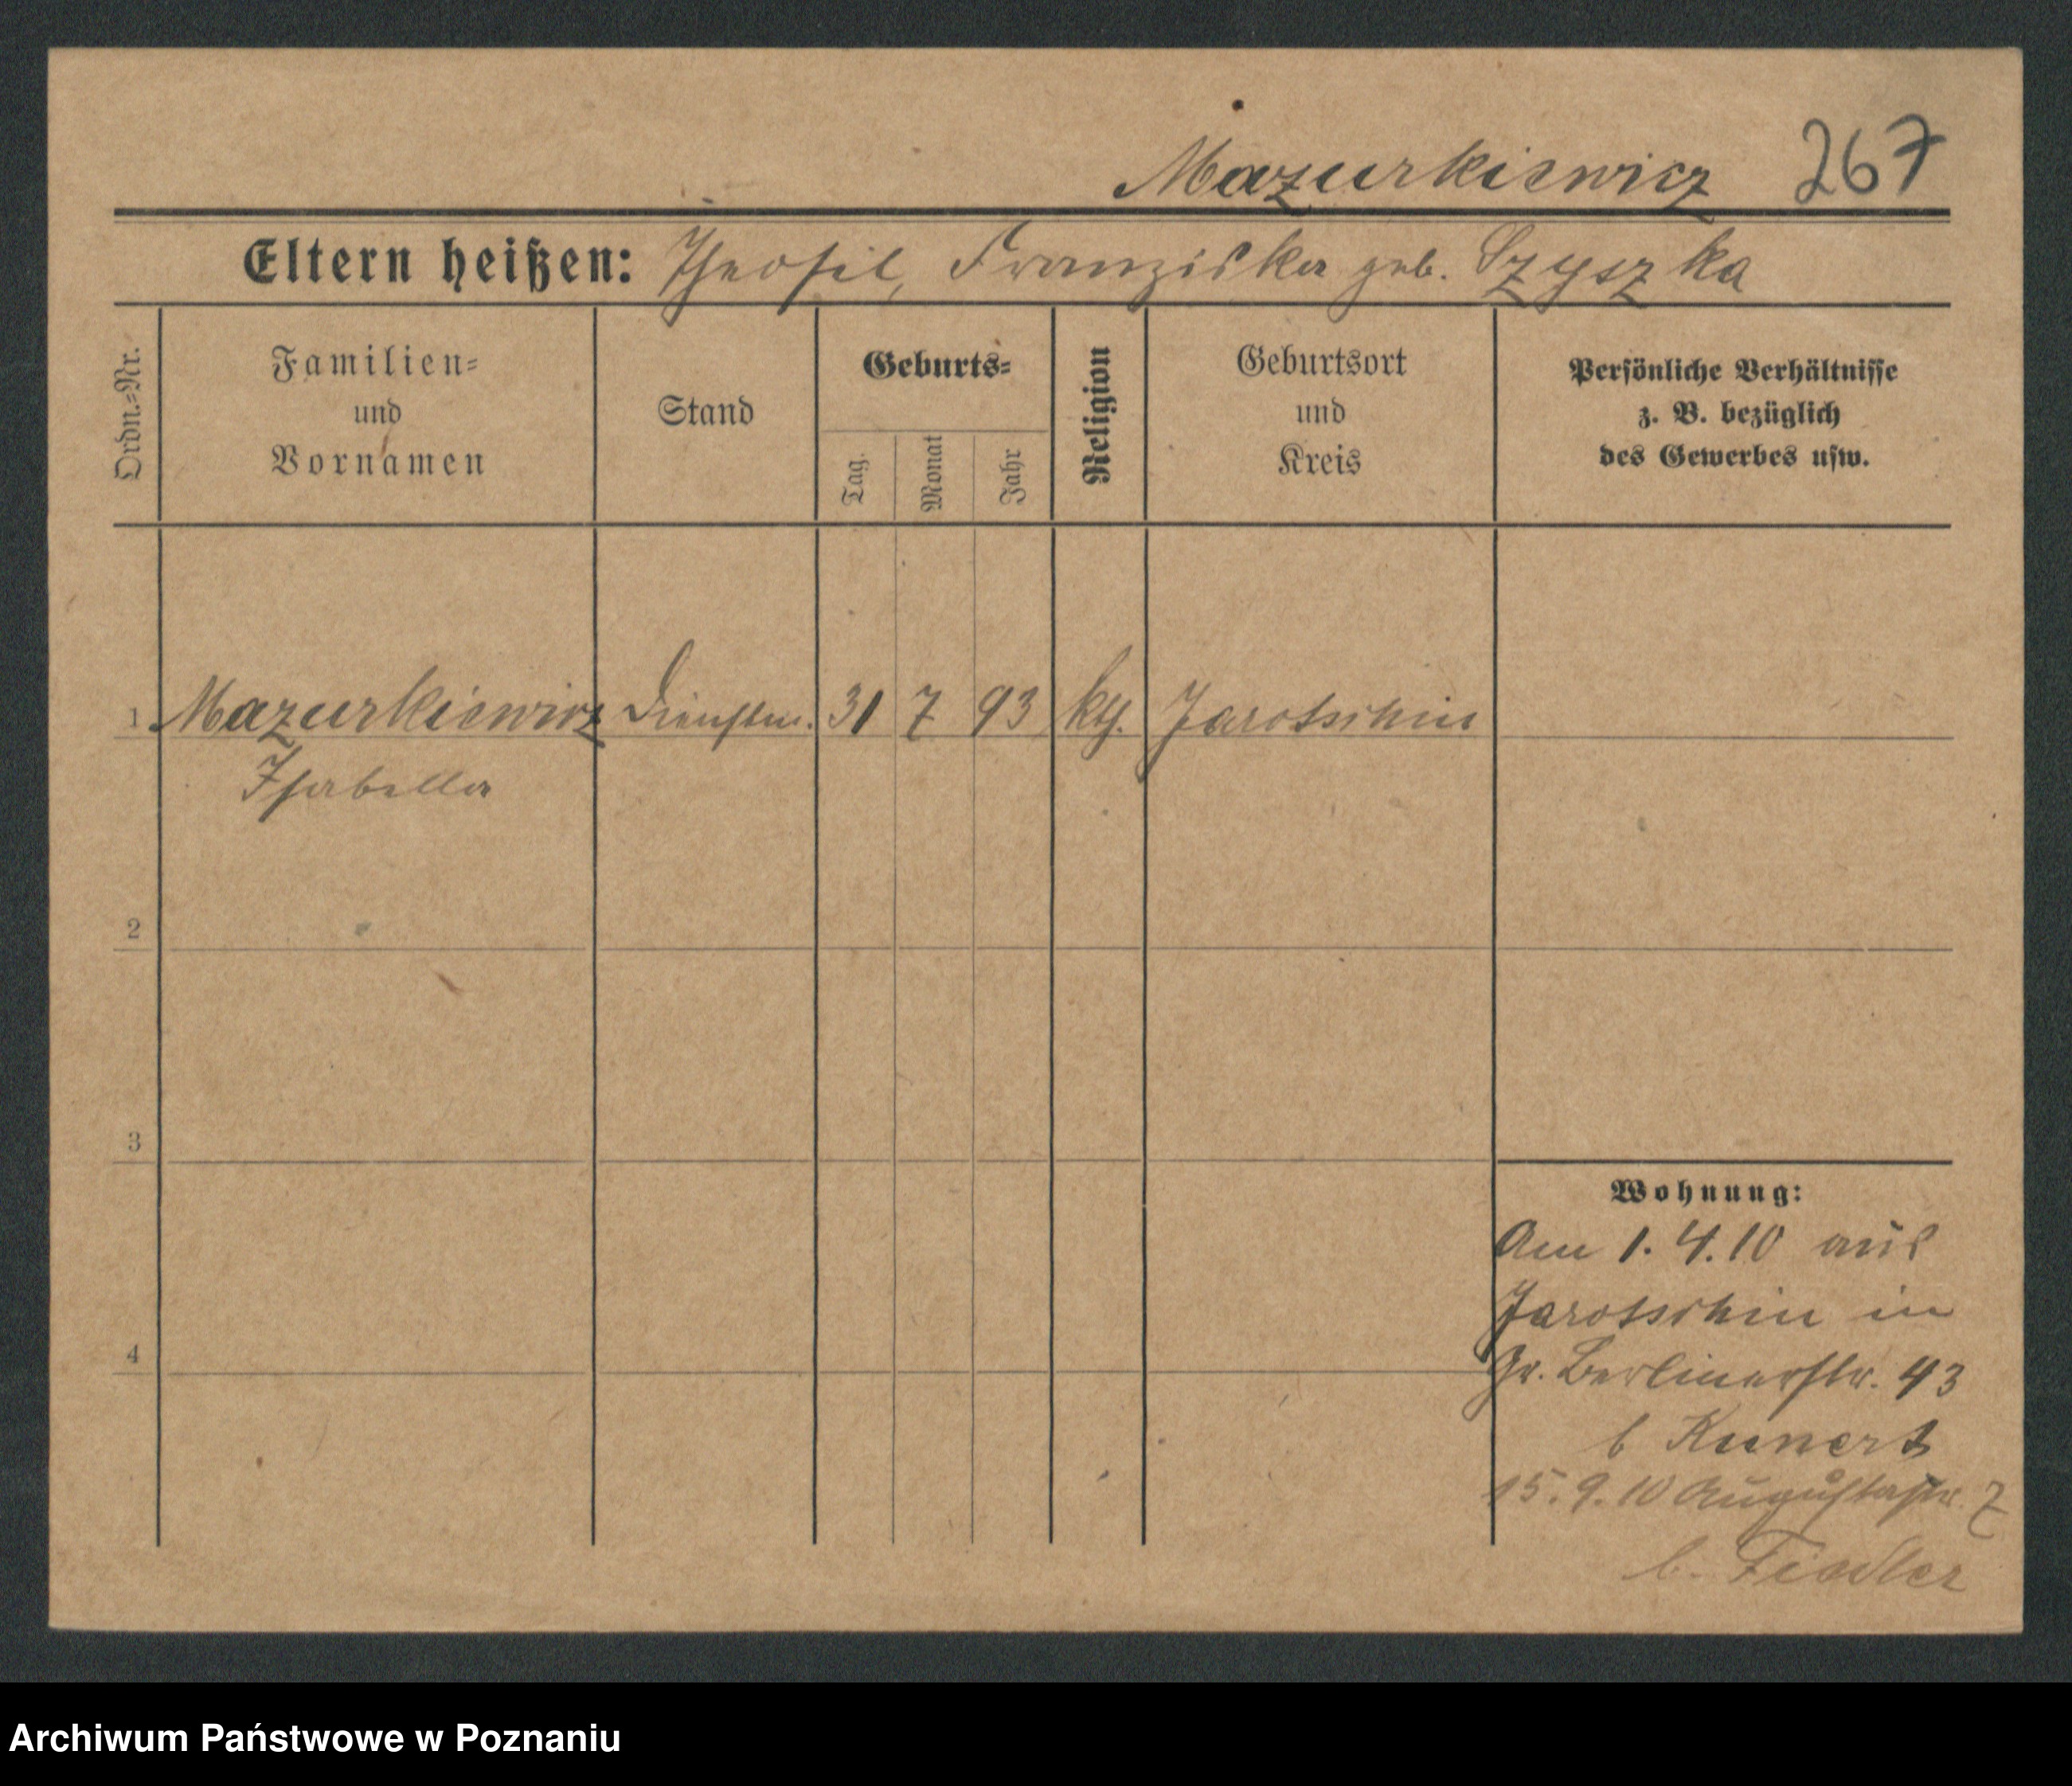 Mazurkiewicz 267
Eltern heißen: Theofil, Franziska geb. Szyszka
Ordn.-Nr.
Familien-
und
Vornamen
Stand
Geburts-
Tag.
Monat
Jahr
Religion
Geburtsort
und
Kreis
Persönliche Verhältnisse
z. B. bezüglich
des Gewerbes usw.
1 Mazurkiewicz Dienstm. 31 7 93 kth. Jarotschin
Isabella
2
3
4
Wohnung:
Am 1.4.10 aus
Jarotschin in
Gr. Berlinerstr. 43
b Kunert
15.9.10 Augustastr. 7
b. Fiedler
Archiwum Państwowe w Poznaniu